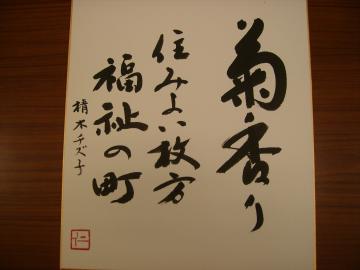 菊香り
住みよい枚方
福祉の町
楠木チズ子
仁